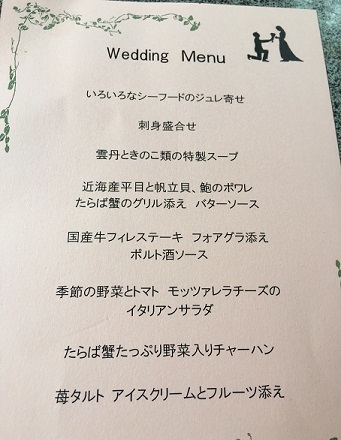 Wedding Menu
いろいろなシーフードのジュレ寄せ
刺身盛合せ
雲丹ときのこ類の特製スープ
近海産平目と帆立貝、鮑のポワレ
たらば蟹のグリル添え バターソース
国産牛フィレステーキ フォアグラ添え
ポルト酒ソース
季節の野菜とトマト モッツァレラチーズの
イタリアンサラダ
たらば蟹たっぷり野菜入りチャーハン
苺タルト アイスクリームとフルーツ添え